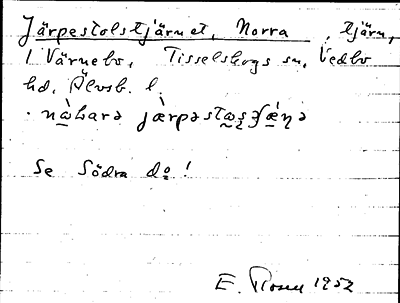 Järpestolstjärnet, Norra, tjärn,
i Värnebo, Tisselskogs sn, Vedbo
hd, Älvsb. l.
Se Södra do!
E. Rosell 1952